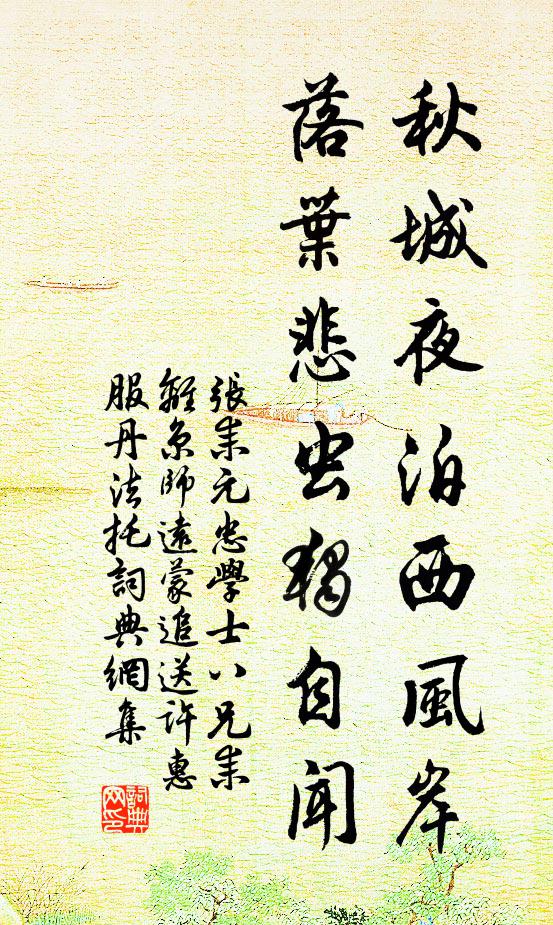 秋城夜泊西風岸
落葉悲虫獨自聞
張耒元忠學士八兄耒
離京師遠蒙追送許惠
服丹法托詞典網集
詞典
网印